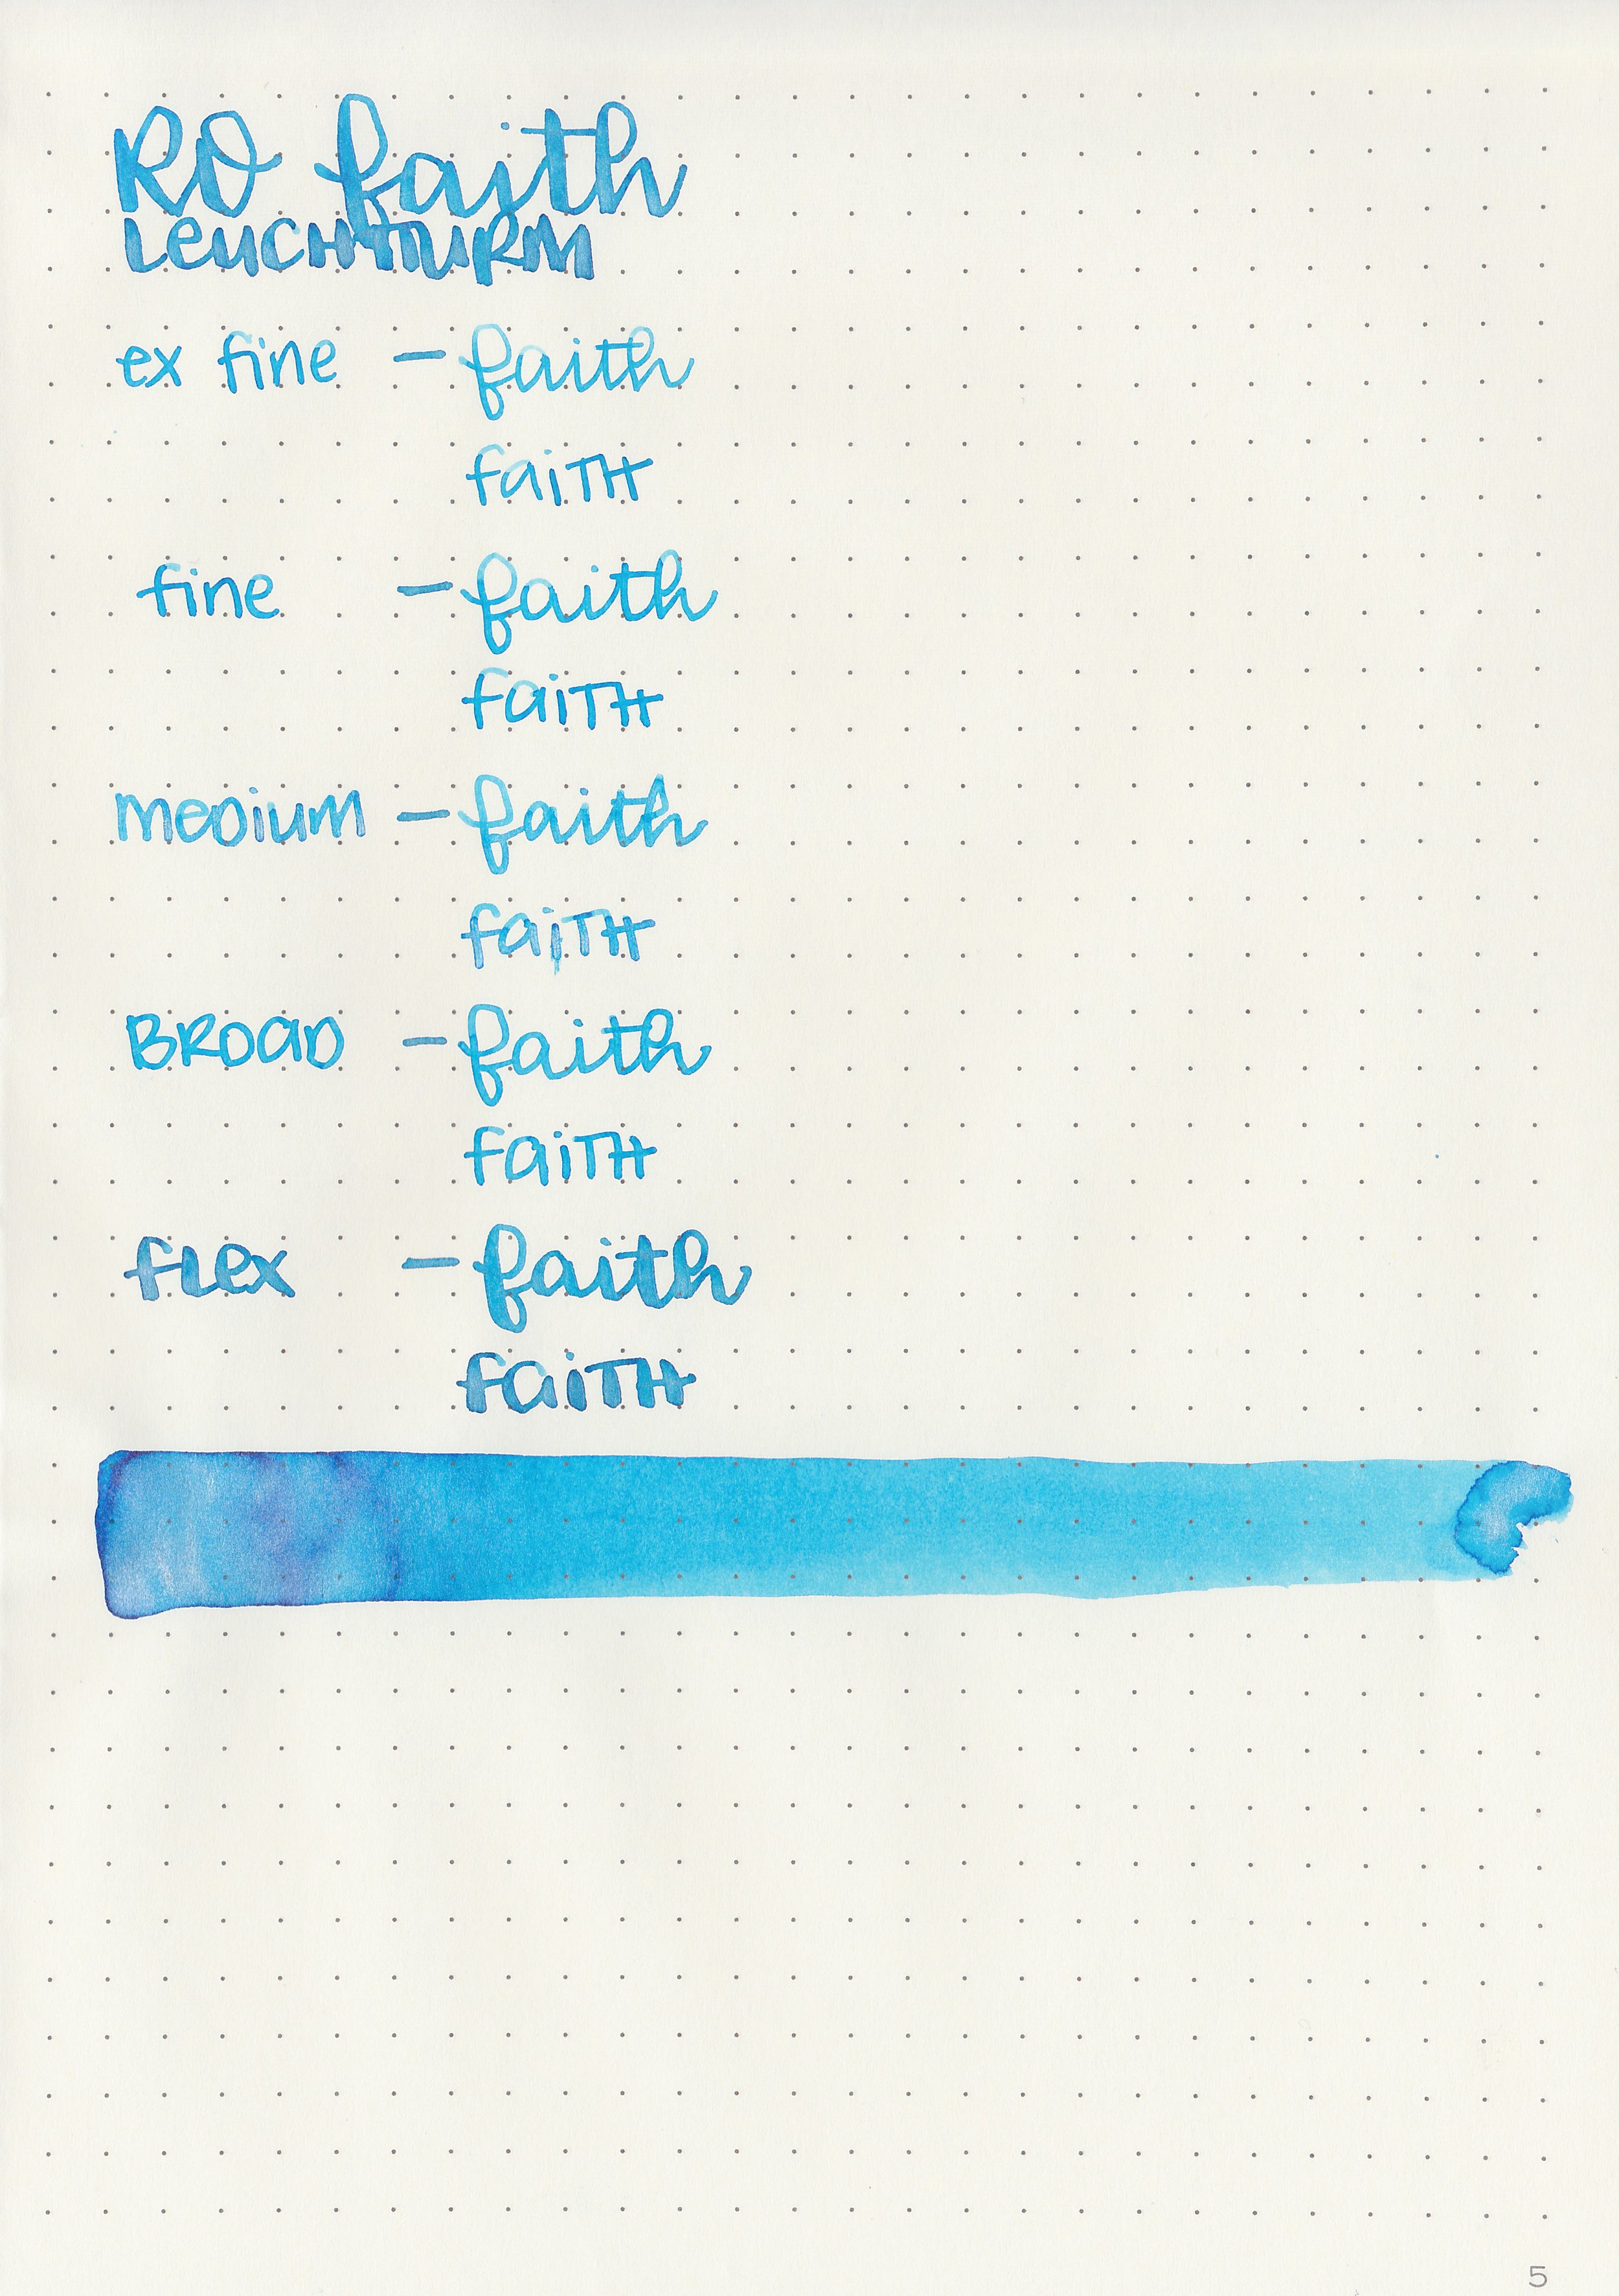 RO faith
LEUCHTTURM
ex fine - faith
faith
fine - faith
faith
medium - faith
faith
BROAD - faith
faith
flex - faith
faith
5